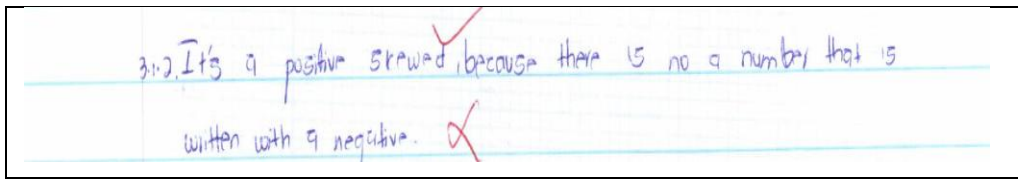 3.1.2. It's a positive skewed, because there is no a number that is
written with a negative.